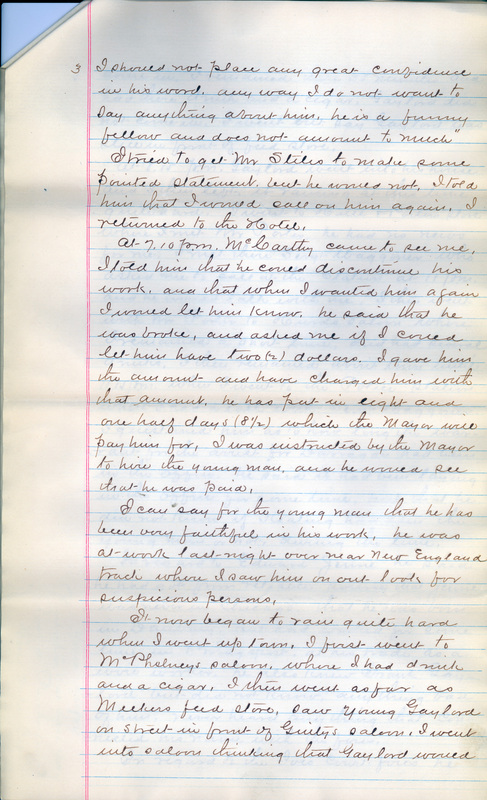 3 I should not place any great confidence
in his word. any way I do not want to
say anything about him. he is a funny
fellow and does not amount to much"
I tried to get Mr Stiles to make some
pointed statement, but he would not, I told
him that I would call on him again. I
returned to the Hotel.
At 7.10 pm. McCarthy came to see me,
I told him that he could discontinue his
work. and that when I wanted him again
I would let him know. he said that he
was broke, and asked me if I could
let him have two (2) dollars. I gave him
the amount and have charged him with
that amount, he has put in eight and
one half days (8½) which the Mayor will
pay him for, I was instructed by the Mayor
to hire the young man. and he would see
that he was paid,
I can say for the young man that he has
been very faithful in his work, he was
at work last night over near New England
track where I saw him on out look for
suspicious persons,
It now began to rain quite hard
when I went up town. I first went to
saloon, where I had drink
and a cigar, I then went as far as
Meekers feed store, saw young Gaylord
on street in front of saloon, I went
into saloon thinking that Gaylord would